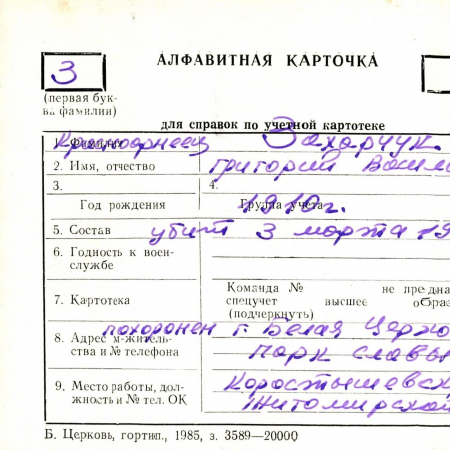 АЛФАВИТНАЯ КАРТОЧКА
З
(первая бук-
ва фамилии)
для справок по учетной картотеке
1. Фамилия Красноармеец Захарчук
2. Имя, отчество Григорий Васил
3. 4.
Год рождения Группа учета 1910 г.
5. Состав убит 3 марта 19
6. Годность к воен-
службе
7. Картотека
Команда № не предна
спецучет высшее образ
(подчеркнуть)
похоронен г. Белая Церко
8. Адрес м-житель-
ства и № телефона Парк славы
9. Место работы, дол-
жность и № тел. ОК
Коростышевск
Житомирской
Б. Церковь, гортип., 1985, з. 3589—20000